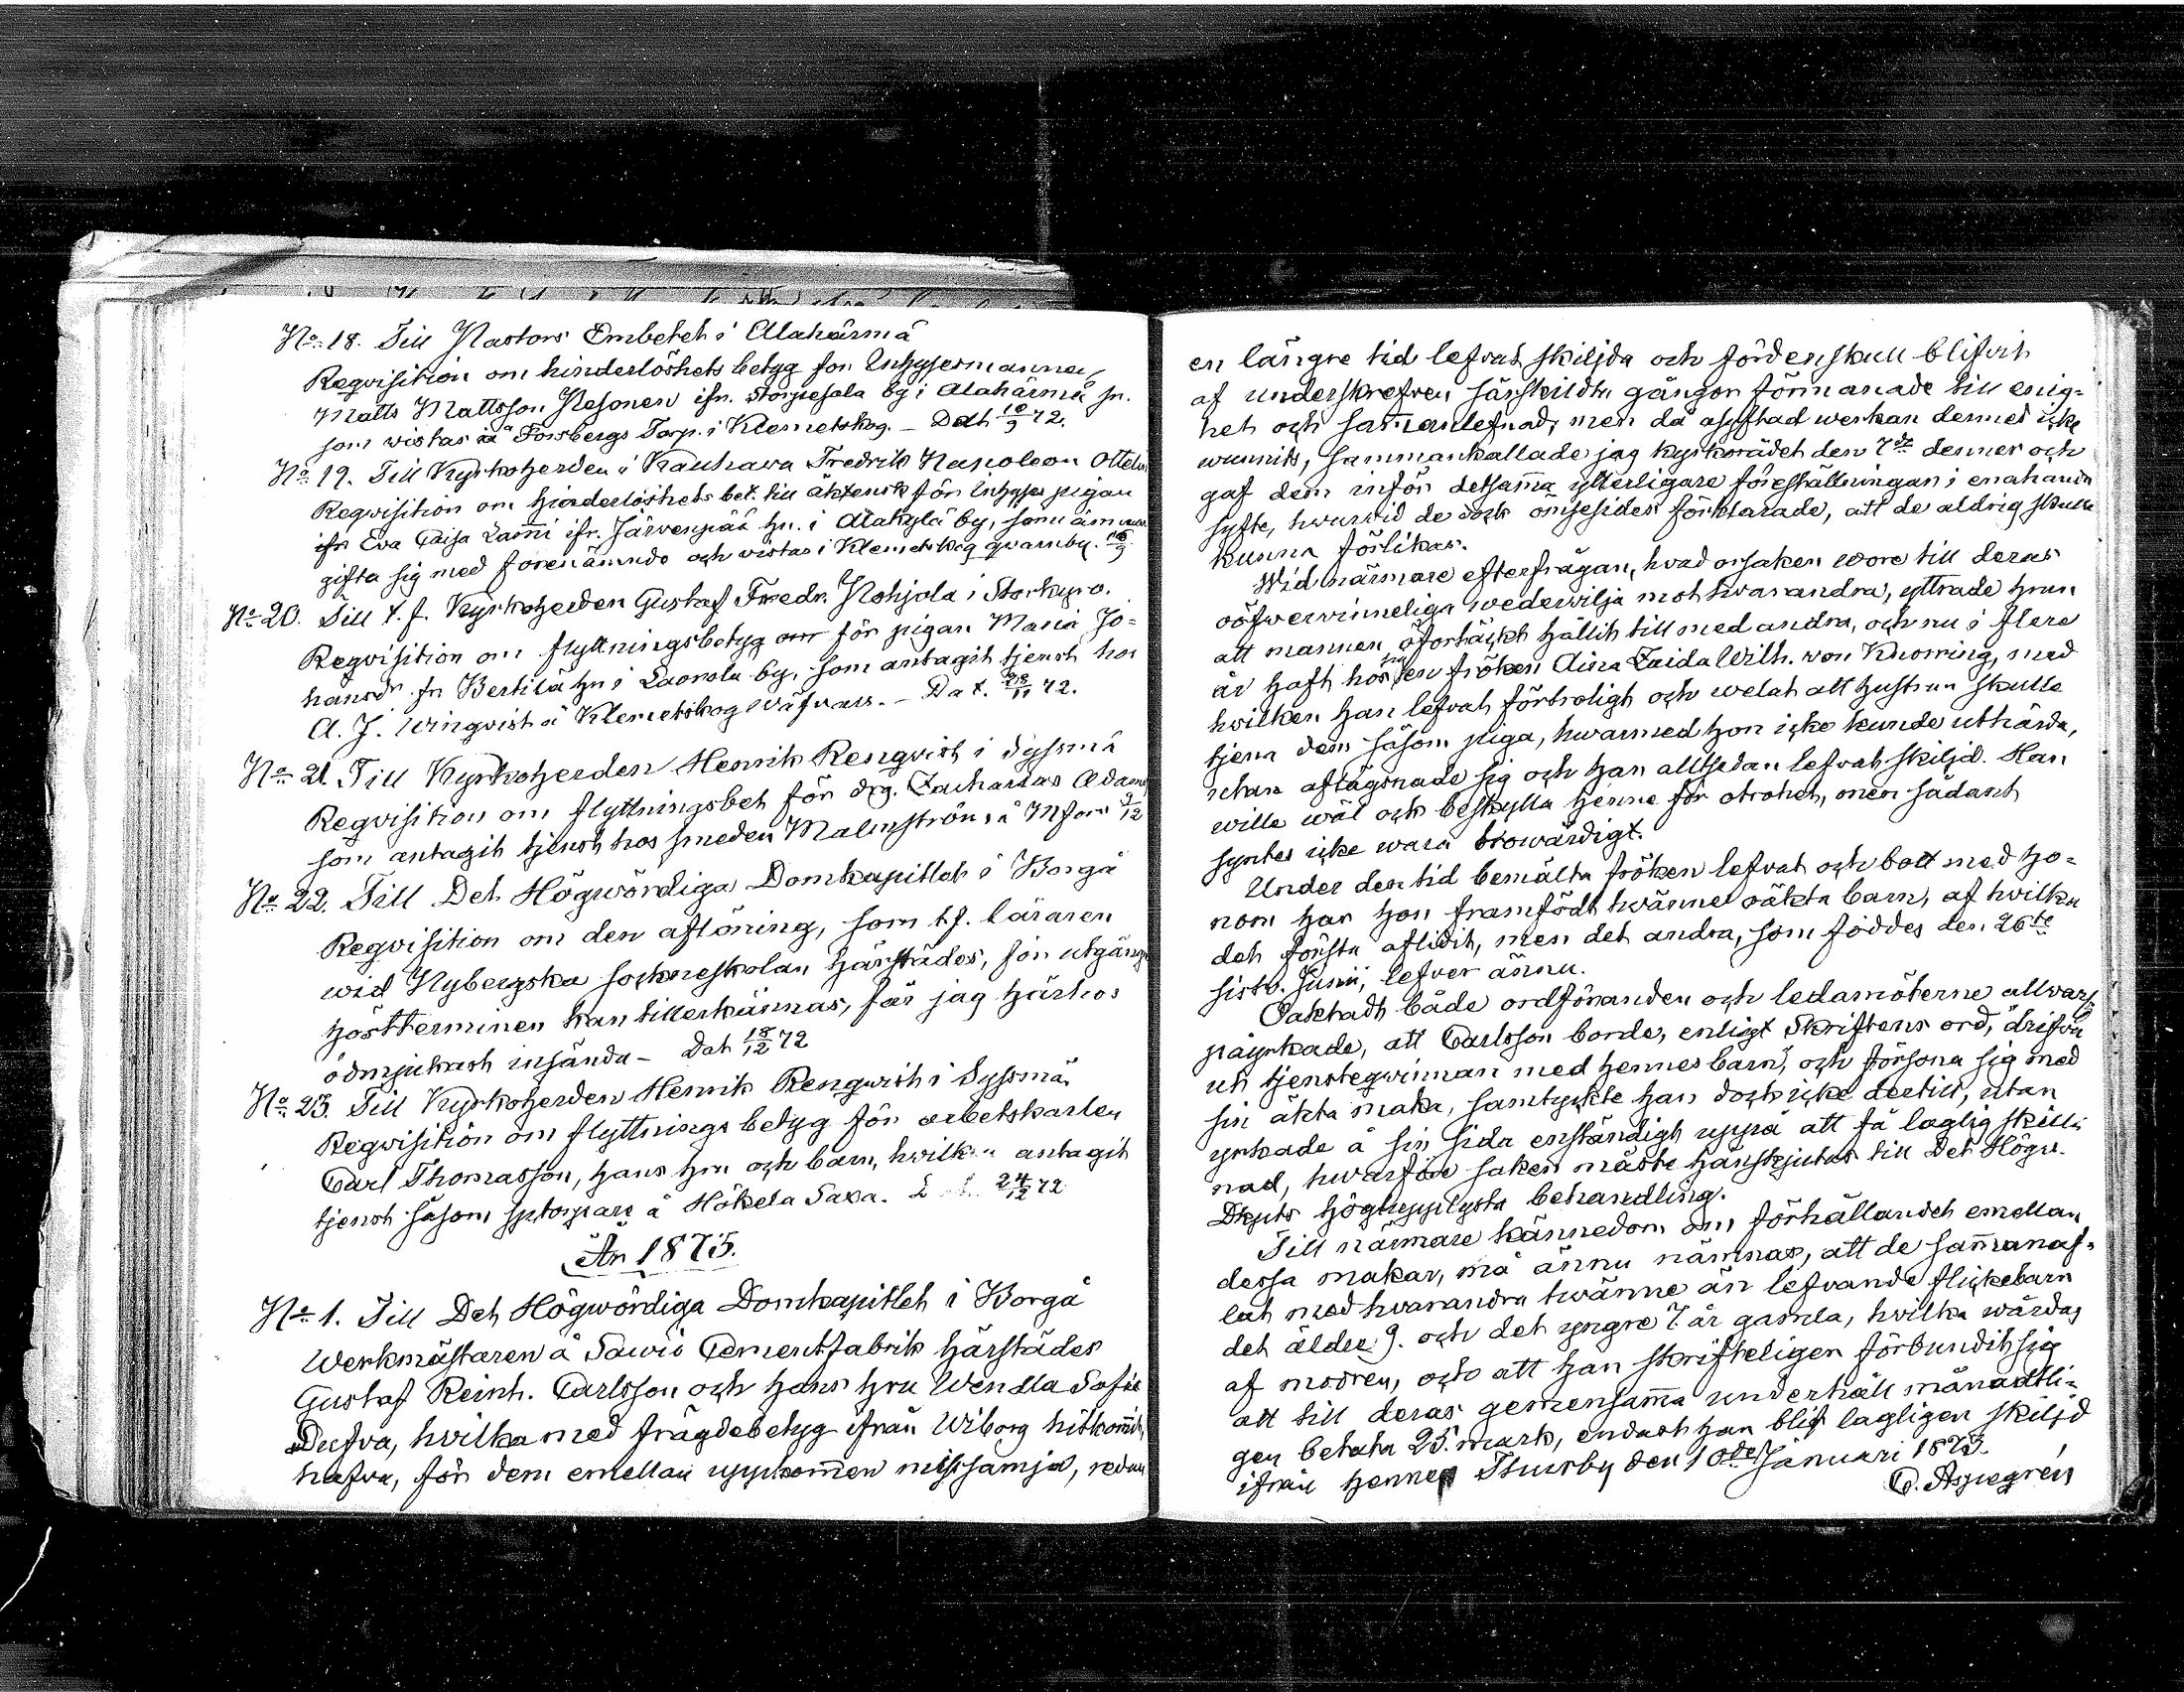 No 18. Till Pastors Embetet i Alahärmä
Reqvisition om hinderlöshets betyg för Inhysesmannen
Matts Mattsson Pesonen ifr. Storpesala by i Alahärmä sn.
som vistas å Forsbergs Torp. i Klemetskog. – Dat 10/9 72.
No 19. Till Kyrkoherden i Kauhawa Fredrik Napoleon Ottelin
Reqvisition om hinderlöshets bet. till äktensk. för Inhyses pigan
ifr Eva Caisa Lassi ifr. Järvenpää hn. i Alakylä by, som ämnar
gifta sig med förenämnde och vistas i Klemetskog qvarnby. 10/9
No 20. Till t. f. Kyrkoherden Gustaf Fredr. Pohjala i Storkyro.
Reqvisition om flyttningsbetyg om för pigan Maria Jo=
hansdr. fr Bertilä hn i Laorola by, som antagit tjenst hos
A. J. Winqvist å Klemetskog Wäfveri. – Dat. 28/11 72.
No 21. Till Kyrkoherden Henrik Renqvist i Sysmä
Reqvisition om flyttningsbet för drg. Zacharias Adams
som antagit tjenst hos smeden Malmström å Mfors 5/12
No 22. Till Det Högwördiga Domkapitlet i Borgå
Reqvisition om den aflöning, som t.f. läraren
wid Nybergska sockneskolan härstädes, för utgångn
höstterminen kan tillerkännas, får jag härhos
ödmjukast insända – Dat 18/12 72
No 23. Till Kyrkoherden Henrik Renqwist i Sysmä
Reqvisition om flyttnings betyg för arbetskarlen
Carl Thomasson, hans hru och barn, hvilken antagit
tjenst såsom sptorpare å Hökela Saxa. 24/12 72
År 1873.
No 1. Till Det Högwördiga Domkapitlet i Borgå
Werkmästaren å Sawio Cementfabrik härstädes
Gustaf Reinh. Carlsson och hans hru Wendla Sofie
Dufva, hvilka med frägdebetyg ifrån Wiborg hitkommit,
hafva, för dem emellan uppkommen missämja, redan
en längre tid lefvat skiljda och fördenskull blifvit
af underskrefven särskildta gångor förmanade till enig=
het och sammanlefnad, men då asyftad werkan dermed icke
wunnits, sammankallade jag kyrkorådet den 7de dennes och
gaf dem inför detsamma ytterligare föreställningar i enahanda
syfte, hwarvid de dock ömsesides förklarade, att de aldrig skulle
kunna förlikas.
Wid närmare efterfrågan, hvad orsaken wore till deras
oöfwervinneliga wederwilja mot hwarandra, yttrade hrun
att mannen oförtäckt hållit till med andra, och nu i flere
år haft hos sig en fröken Aina Zaida Wilh. von Knorring, med
hvilken han lefvat förtroligt och welat att hustrun skulle
tjena dem såsom piga, hwarmed hon icke kunde uthärda,
utan aflägsnade sig och han alltsedan lefvat skiljd. Han
wille wäl ock beskylla henne för otrohet, men sådant
syntes icke wara trowärdigt.
Under den tid bemälta fröken lefvat och bott med ho=
nom har hon framfödt twänne oäkta barn, af hvilka
det första aflidit, men det andra, som föddes den 26te
sistl. Junii, lefver ännu.
Oaktadt både ordföranden och ledamöterne allvarl.
påyrkade, att Carlsson borde, enligt Skriftens ord, "drifva
ut tjensteqwinnan med hennes barn", och försona sig med
sin äkta maka, samtyckte han dock icke dertill, utan
yrkade å sin sida enständigt uppå att få laglig skill=
nad, hwarföre saken måste hänskjutas till Det Högw.
Dkpits högtupplysta behandling.
Till närmare kännedom om förhållandet emellan
dessa makar, må ännu nämnas, att de sammanaf=
lat med hvarandra twänne än lefvande flickebarn
det äldre 9. och det yngre 7 år gamla, hvilka wårdas
af modren, och att han skrifteligen förbundit sig
att till deras gemensamma underhåll månadtli=
gen betala 25. mark, endast han blif lagligen skiljd
ifrån henne. Thusby den 10de Januari 1873.
C. Aspegren